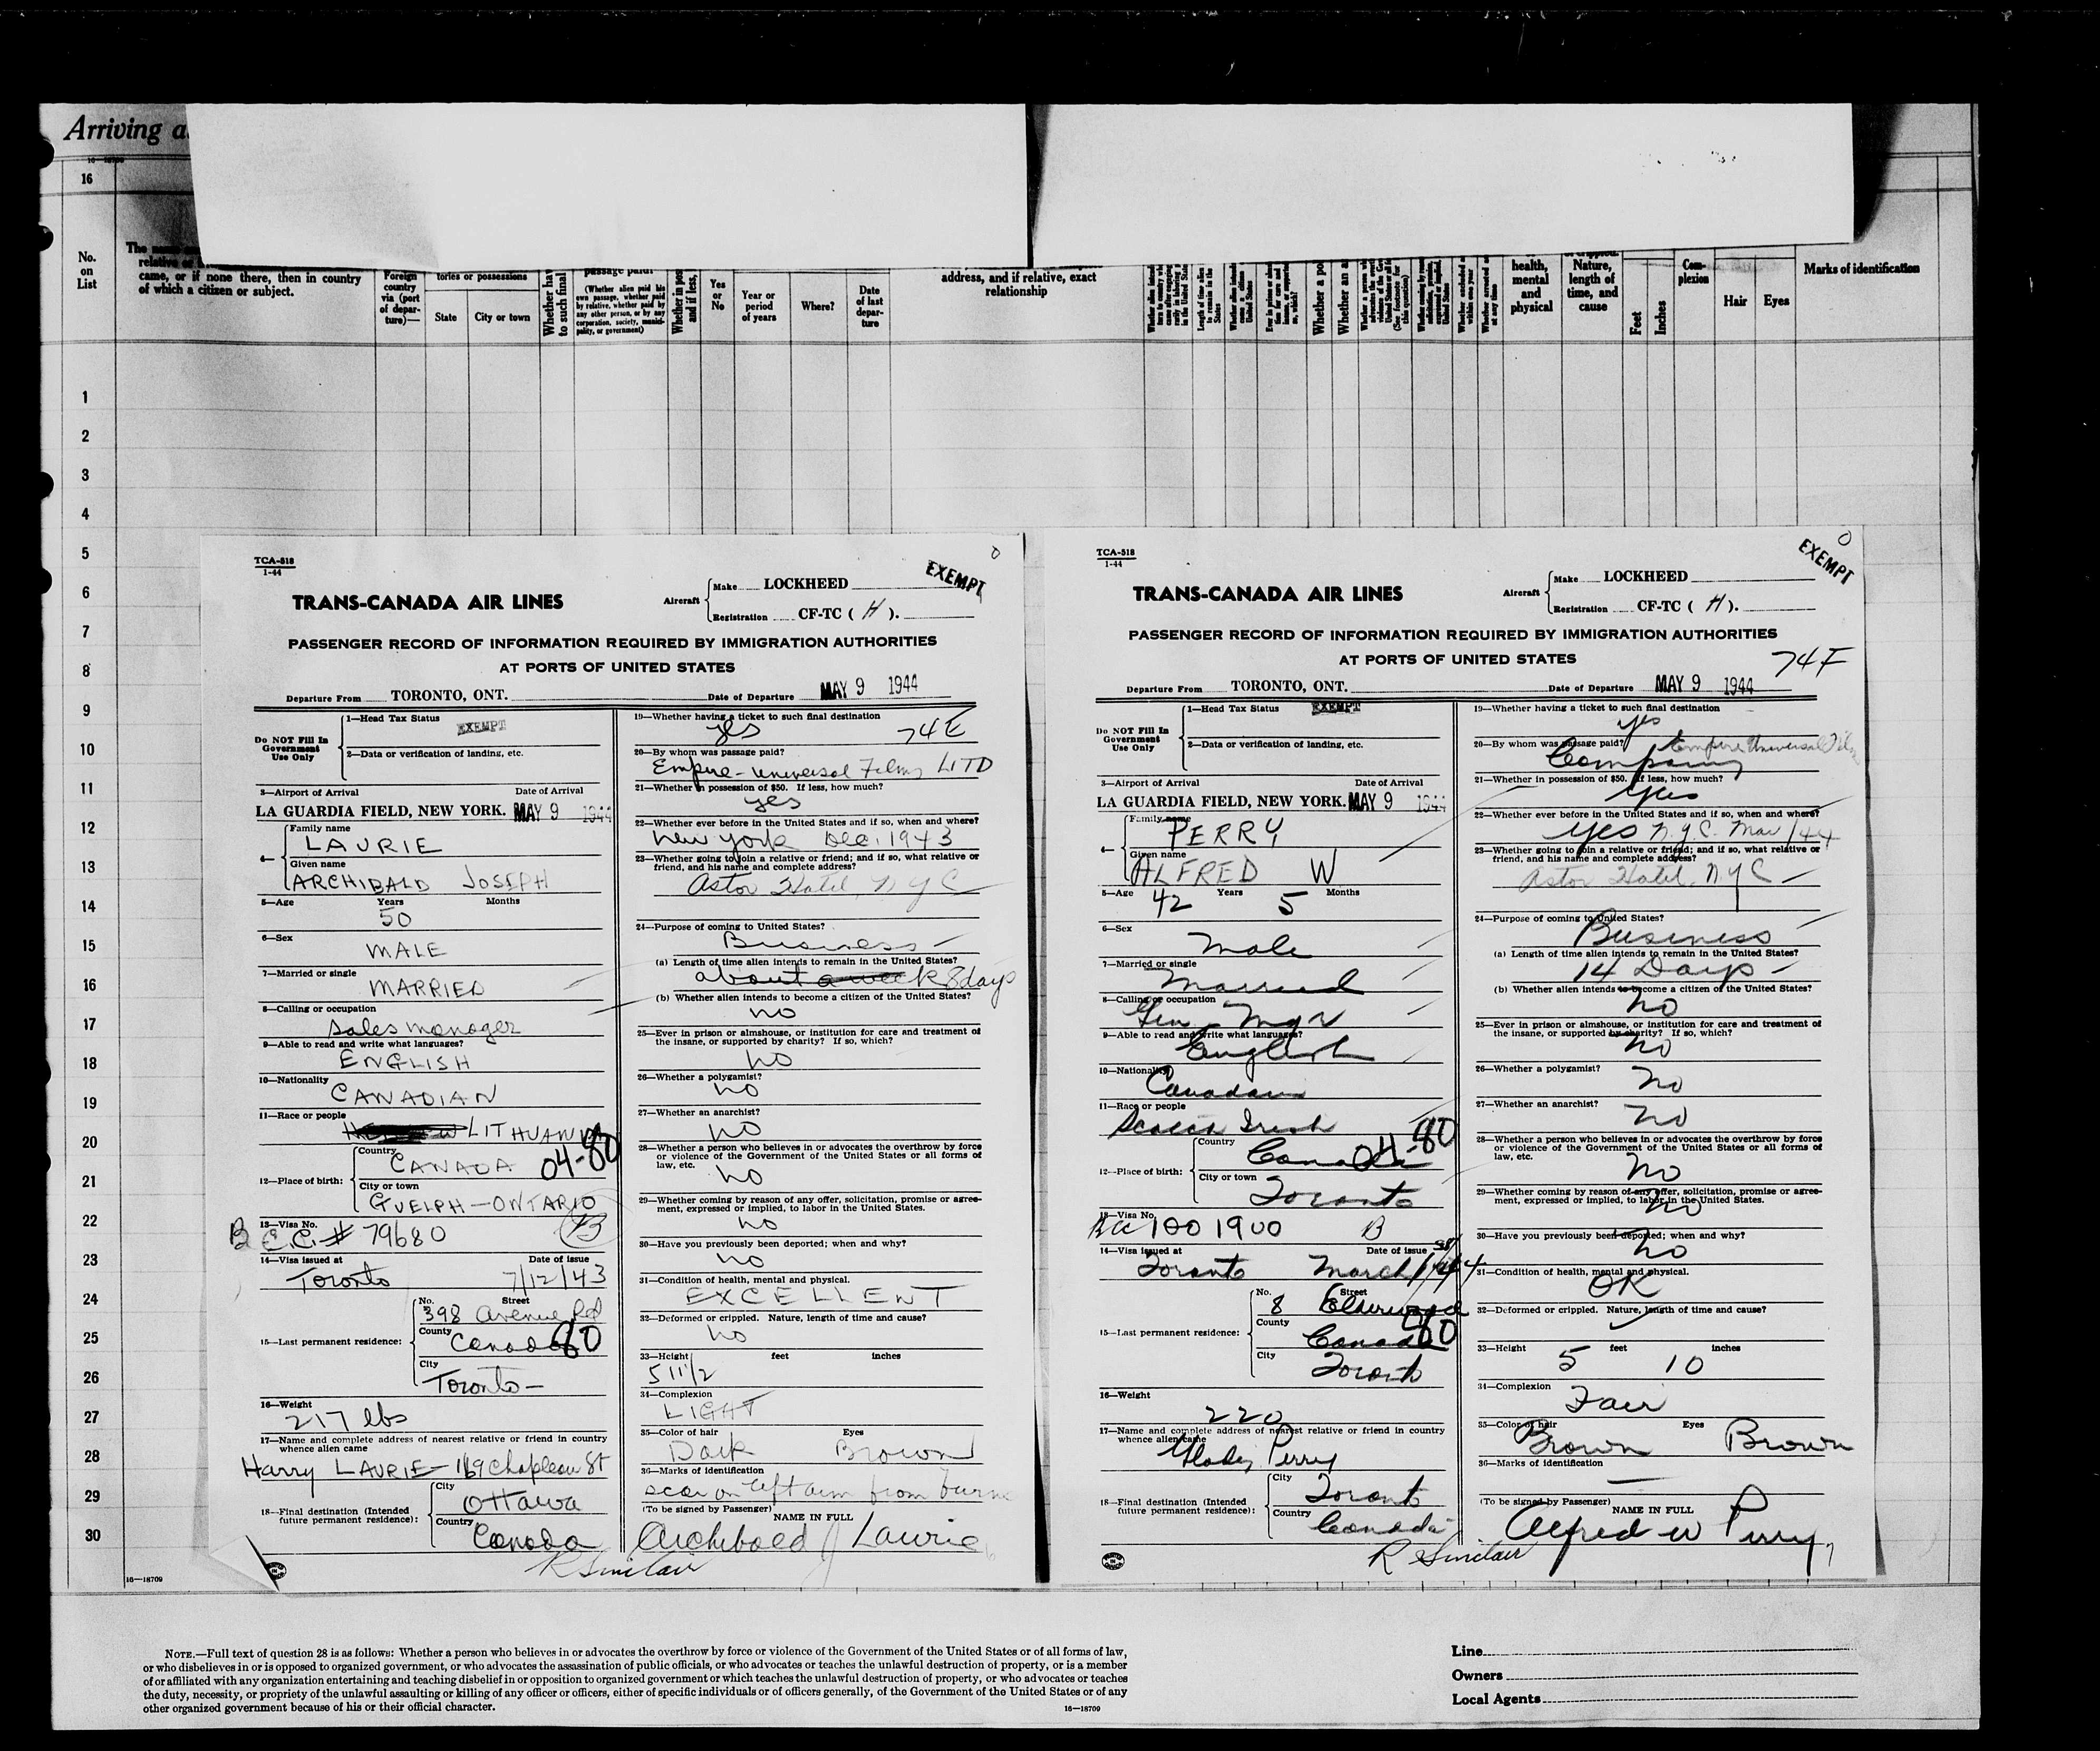 Arriving a
16—18709
16
No.
on
List
The
relative or
came, or if none there, then in country
of which a citizen or subject.
Foreign
country
via (port
of depar-
ture)—
tories or possessions
State
City or town
Whether hav
to such final
passage paid?
(Whether alien paid his
own passage, whether paid
by relative, whether paid by
any other person, or by any
corporation, society, munici-
pality, or government)
Whether in pos
and if less,
Yes
or
No
Year or
period
of years
Where?
Date
of last
depar-
ture
address, and if relative, exact
relationship
Whether a pol
Whether an a
health,
mental
and
physical
Nature,
length of
time, and
cause
Feet
Inches
Com-
plexion
Hair
Eyes
Marks of identification
1
2
3
4
5
6
7
8
9
10
11
12
13
14
15
16
17
18
19
20
21
22
23
24
25
26
27
28
29
30
TCA-518
1-44
EXEMPT
TRANS-CANADA AIR LINES
Aircraft
Make LOCKHEED
Registration CF-TC ( H ).
PASSENGER RECORD OF INFORMATION REQUIRED BY IMMIGRATION AUTHORITIES
AT PORTS OF UNITED STATES
Departure From TORONTO, ONT. Date of Departure MAY 9 1944
Do NOT Fill In
Government
Use Only
1—Head Tax Status EXEMPT
2—Data or verification of landing, etc.
3—Airport of Arrival Date of Arrival
LA GUARDIA FIELD, NEW YORK. MAY 9 1944
4—
Family name
LAURIE
Given name
ARCHIBALD JOSEPH
5—Age Years Months
50
6—Sex
MALE
7—Married or single
MARRIED
8—Calling or occupation
Sales manager
9—Able to read and write what languages?
ENGLISH
10—Nationality
CANADIAN
11—Race or people
LITHUANIA
12—Place of birth:
Country
CANADA 04-80
City or town
GUELPH—ONTARIO
13—Visa No.
B C.C. # 79680 B
14—Visa issued at Date of issue
Toronto 7/12/43
15—Last permanent residence:
No. Street
398 Avenue Rd
County
Canada 80
City
Toronto—
16—Weight
217 lbs
17—Name and complete address of nearest relative or friend in country
whence alien came
Harry LAURIE—169 Chapleau St
18—Final destination (Intended
future permanent residence):
City
Ottawa
Country
Canada
19—Whether having a ticket to such final destination
yes 74E
20—By whom was passage paid?
Empire-Universal Films LITD
21—Whether in possession of $50. If less, how much?
yes
22—Whether ever before in the United States and if so, when and where?
New York Dec. 1943
23—Whether going to join a relative or friend; and if so, what relative or
friend, and his name and complete address?
Astor Hotel, NYC
24—Purpose of coming to United States?
Business
(a) Length of time alien intends to remain in the United States?
about a week 8 days
(b) Whether alien intends to become a citizen of the United States?
no
25—Ever in prison or almshouse, or institution for care and treatment of
the insane, or supported by charity? If so, which?
no
26—Whether a polygamist?
no
27—Whether an anarchist?
no
28—Whether a person who believes in or advocates the overthrow by force
or violence of the Government of the United States or all forms of
law, etc.
no
29—Whether coming by reason of any offer, solicitation, promise or agree-
ment, expressed or implied, to labor in the United States.
no
30—Have you previously been deported; when and why?
no
31—Condition of health, mental and physical.
EXCELLENT
32—Deformed or crippled. Nature, length of time and cause?
no
33—Height feet inches
5 11 1/2
34—Complexion
LIGHT
35—Color of hair Eyes
Dark Brown
36—Marks of identification
scar on left arm from burn
(To be signed by Passenger)
NAME IN FULL
Archibald J Laurie
R Sinclair
16—18709
TCA-518
1-44
EXEMPT
TRANS-CANADA AIR LINES
Aircraft
Make LOCKHEED
Registration CF-TC ( H ).
PASSENGER RECORD OF INFORMATION REQUIRED BY IMMIGRATION AUTHORITIES
AT PORTS OF UNITED STATES
74F
Departure From TORONTO, ONT. Date of Departure MAY 9 1944
Do NOT Fill In
Government
Use Only
1—Head Tax Status EXEMPT
2—Data or verification of landing, etc.
3—Airport of Arrival Date of Arrival
LA GUARDIA FIELD, NEW YORK. MAY 9 1944
4—
Family name
PERRY
Given name
ALFRED W
5—Age Years Months
42 5
6—Sex
Male
7—Married or single
Married
8—Calling or occupation
Gen Mgr
9—Able to read and write what languages?
English
10—Nationality
Canadian
11—Race or people
Scotch Irish
12—Place of birth:
Country
Canada 04-80
City or town
Toronto
13—Visa No.
100 1900 B
14—Visa issued at Date of issue
Toronto March
15—Last permanent residence:
No. Street
8 Elderwood
County
Canada 80
City
Toronto
16—Weight
220
17—Name and complete address of nearest relative or friend in country
whence alien came
Gladys Perry
18—Final destination (Intended
future permanent residence):
City
Toronto
Country
Canada
19—Whether having a ticket to such final destination
yes
20—By whom was passage paid? Empire Universal Films
Company
21—Whether in possession of $50. If less, how much?
yes
22—Whether ever before in the United States and if so, when and where?
yes N.Y.C. Mar/44
23—Whether going to join a relative or friend; and if so, what relative or
friend, and his name and complete address?
Astor Hotel, NYC
24—Purpose of coming to United States?
Business
(a) Length of time alien intends to remain in the United States?
14 Days
(b) Whether alien intends to become a citizen of the United States?
no
25—Ever in prison or almshouse, or institution for care and treatment of
the insane, or supported by charity? If so, which?
no
26—Whether a polygamist?
no
27—Whether an anarchist?
no
28—Whether a person who believes in or advocates the overthrow by force
or violence of the Government of the United States or all forms of
law, etc.
no
29—Whether coming by reason of any offer, solicitation, promise or agree-
ment, expressed or implied, to labor in the United States.
no
30—Have you previously been deported; when and why?
no
31—Condition of health, mental and physical.
OK
32—Deformed or crippled. Nature, length of time and cause?
33—Height feet inches
5 10
34—Complexion
Fair
35—Color of hair Eyes
Brown Brown
36—Marks of identification
(To be signed by Passenger)
NAME IN FULL
Alfred W Perry
R Sinclair
NOTE.—Full text of question 28 is as follows: Whether a person who believes in or advocates the overthrow by force or violence of the Government of the United States or of all forms of law,
or who disbelieves in or is opposed to organized government, or who advocates the assassination of public officials, or who advocates or teaches the unlawful destruction of property, or is a member
of or affiliated with any organization entertaining and teaching disbelief in or opposition to organized government or which teaches the unlawful destruction of property, or who advocates or teaches
the duty, necessity, or propriety of the unlawful assaulting or killing of any officer or officers, either of specific individuals or of officers generally, of the Government of the United States or of any
other organized government because of his or their official character.
16—18709
Line
Owners
Local Agents